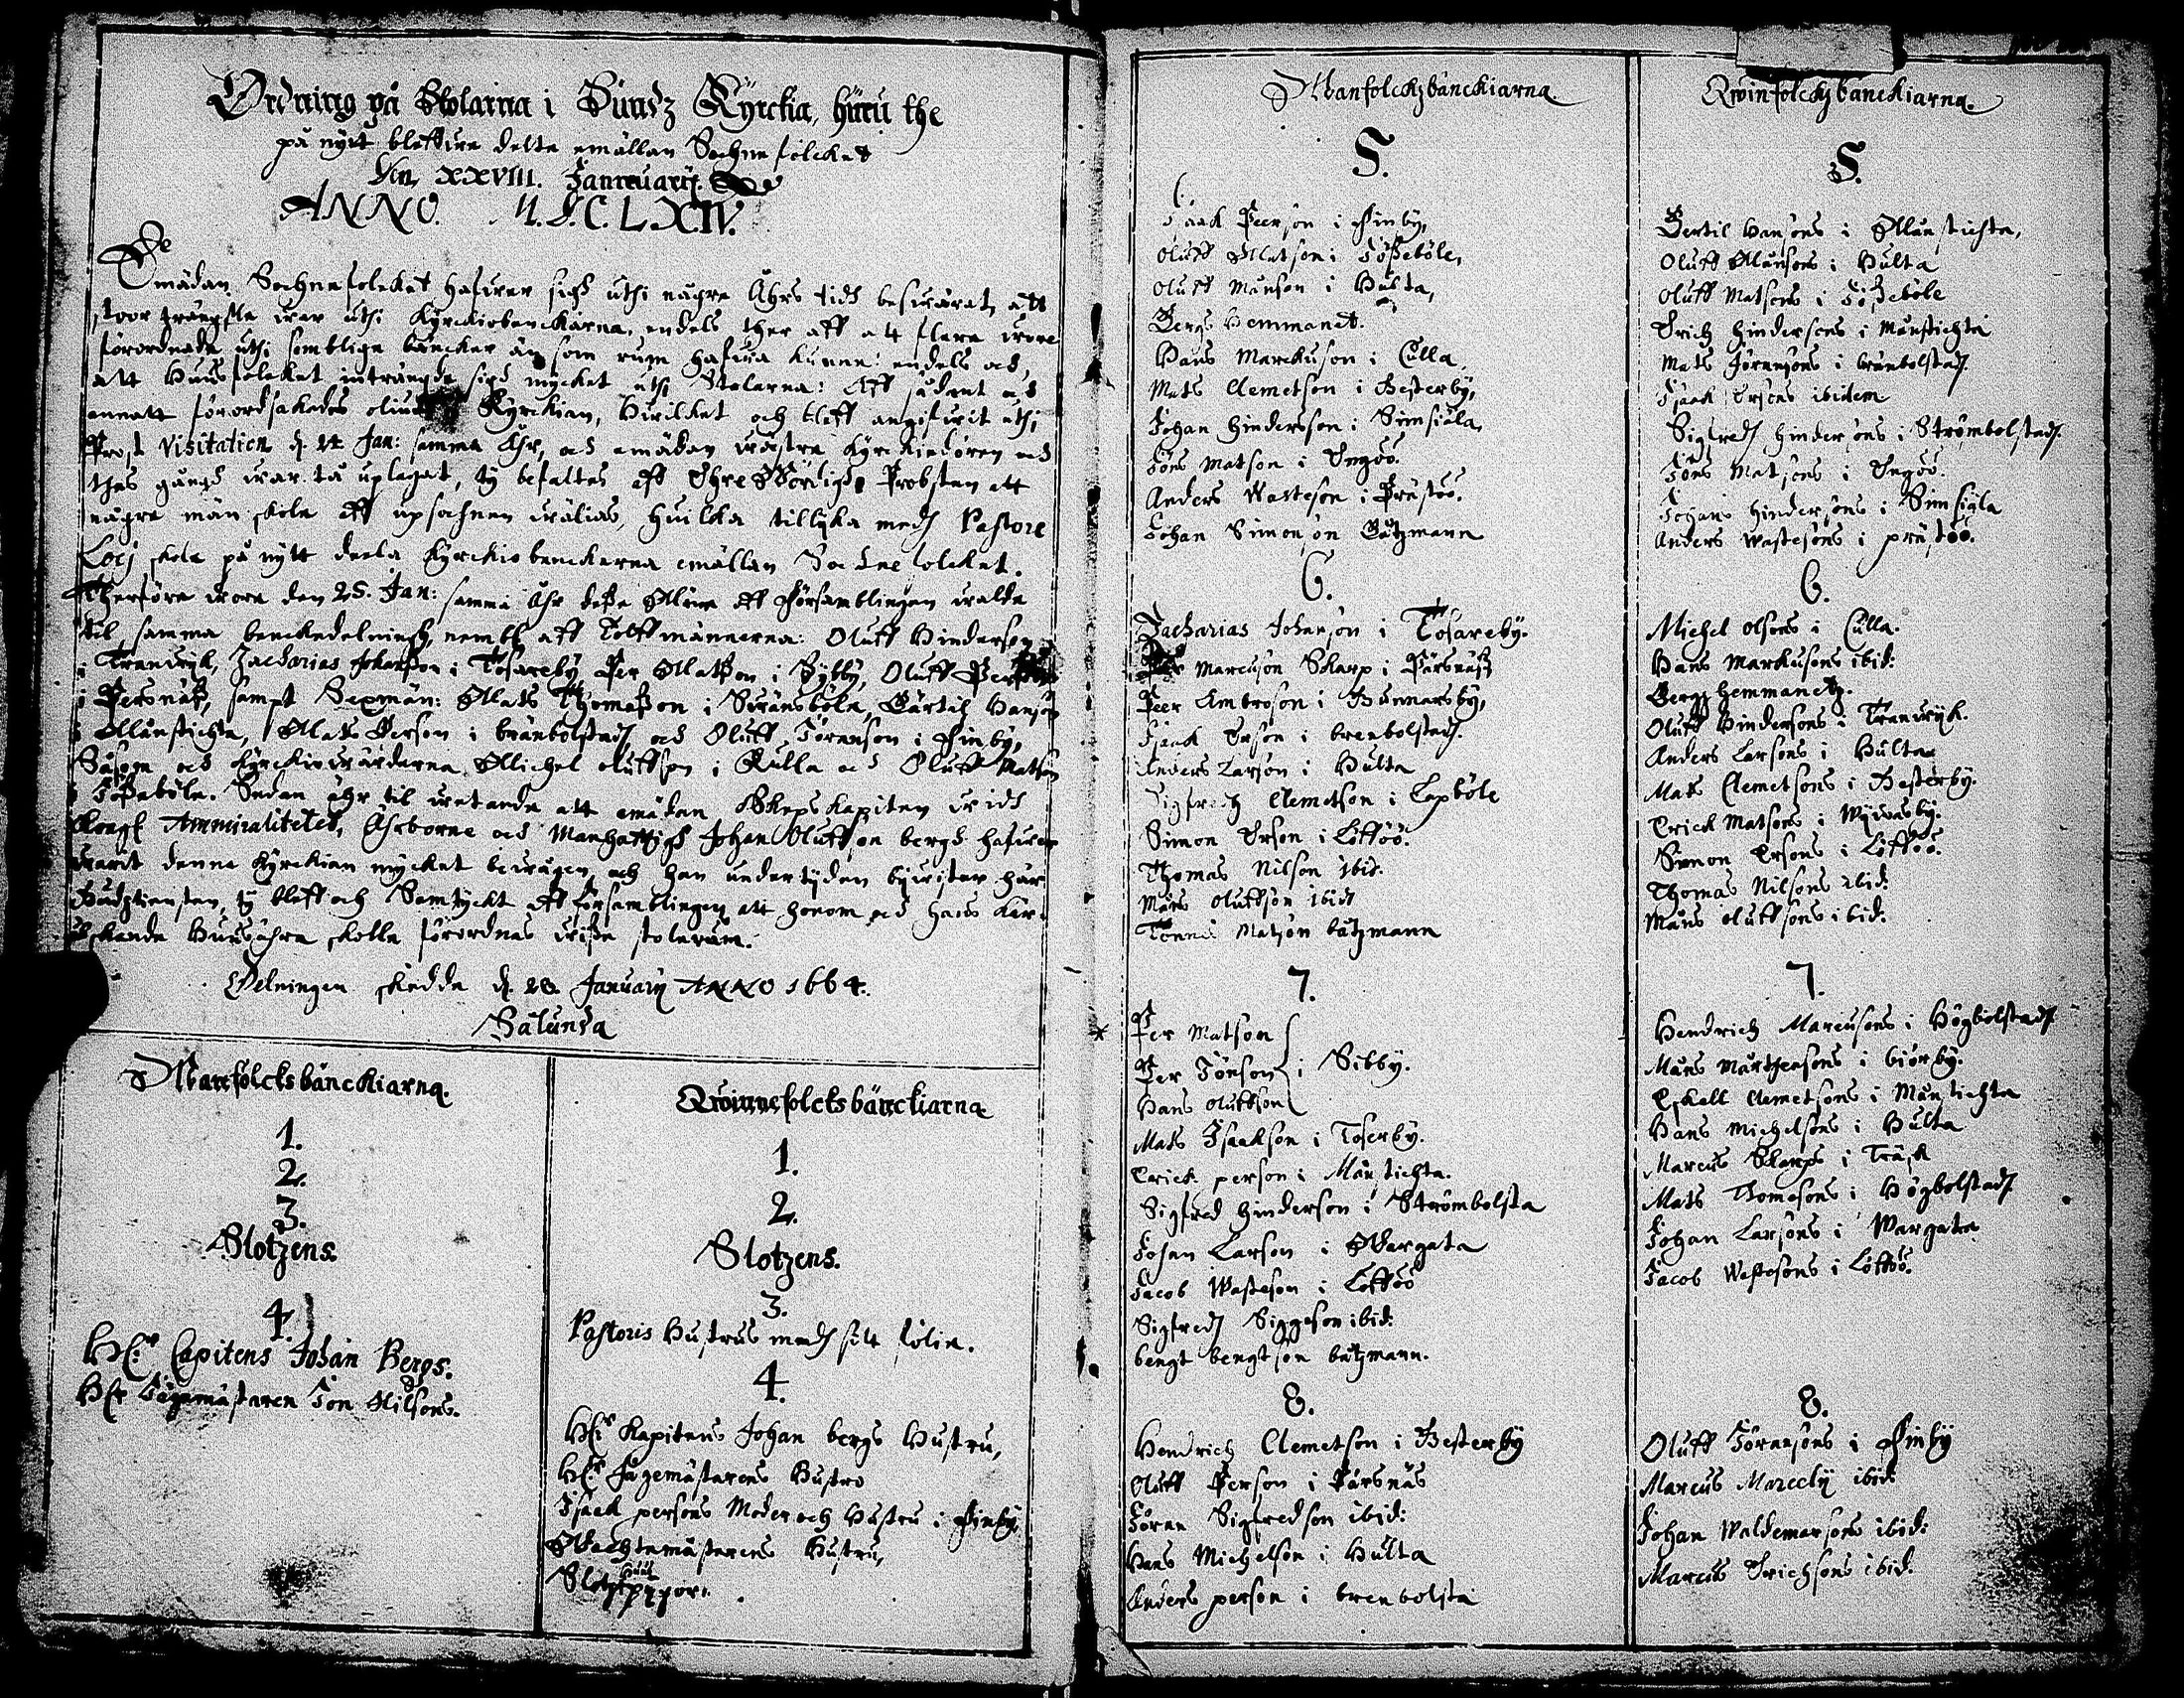 Ordning på Stolarna i Sundz Kyrckia, huru the
på nytt bleffue delte emällan Sochnefolcket
Den XXVIII. Januarij.
ANNO. M.DC.LXIV.
Deemädan Sochnefolcket hafuer sigh uthi någre Åhrs tidh besuärat, att
stoor trängsle war uthi Kyrckiobenckarna, endels ther aff att flere wore
förordnade uthi somblige bäncker än som rum hafua kunne: endels och,
att Huusfolcket inträngde sigh mycket uthi Stolarna: Aff sådant och
annatt förordsakades Kyrckian, Huilcket och bleff angifwit uthi
Prost Visitation d. 24 Jan: samma Åhr, och emädan wästre Kyrckiedören och
thes gång war tå uplagat, ty befaltes aff Ehre Wördigh Probsten att
någre män skole aff upsochnen wälias, huilka tillijka medh Pastore
Loci skole på nytt deela Kyrckiobenckerna emällan Sochnefolcket.
Therföre wore den 25. Jan: samma Åhr deße Männ aff Församblingen walde
til samma benckedelningh, nembl. aff Tolffmännerna: Oluff Hinderson
i Tranwijk, Zacharias Johanßon i Tosareby, Per Matßon i Sybby, Oluff Perßon
i Persnäß, sampt Sexmän: Mats Thomaßon i Swänsböle, Bärtil Hanson
i Månstichta, Mats Person i bränbolstadh och Oluff Jöranson i Finby,
Såsom och Kyrckiowärderna Michel oluffson i Kulla och Oluff Matson
i Joßeböle. Sedan ähr til wetande att emädan Skeps Kapiten widh
Kongl Ammiralitetet, Ehrborne och Manhafftigh Johan Oluffson bergh hafuer
warit denna Kyrckian mycket bewågen, och han undertijden bijwister här
Gudztiensten, ty bleff och Samtyckt aff församblingen att honom och hans Kär-
elskande Huusåhra skolle förordnas wiße stolerum.
Delningen skedde d. 28. Januarij ANNO 1664.
Sålunda
Manfolcksbänckiarna.
1.
2.
3.
Slotzens.
4.
H:r Capitens Johan Bergs.
H:r Jägemästaren Jon Nilsons.
Qwinnefolcksbänckiarna
1.
2.
Slotzens.
3.
Pastoris Hustrus medh sitt folie.
4.
H:r Kapitens Johan bergs Hustru,
H:r Jägemästarens Hustro
Isaak persons Moder och Hustru i Finby,
Wachtemästarens Hustru,
Manfolckzbänckiarna.
5.
Isaak Peerson i Finby,
Oluff Matson i Joßeböle,
Oluff Månson i Hulta,
Bergs Hemmanet.
Hans Marckuson i Culla
Mats Clemetson i Besterby,
Johan Hindersson i Simsiäla,
Jöns Matson i Ingöö.
Anders Wasteson i Prästöö.
Johan Simonson Båtzmann
6.
Zacharias Johanson i Tosareby.
Per Marcuson Skarp i Pärsnäß
Peer Ambroson i Gunnarsby,
Isaak Erson i brenbolstadh.
Anders Larson i Hulta
Sigfredh Clemetson i Lapböle
Simon Erson i Löfföö.
Thomas Nilson ibid.
Måns Oluffson ibidh
Tönnis Matson båtzmann
7.
Per Matson
Per Jönson i Sibby.
Hans Oluffson
Mats Isaakson i Toserby.
Erick person i Månstichta.
Sigfred Hinderson i Strömbolsta
Johan Larson i Wargata
Jacob Wasteson i Löfföö
Sigfredh Siggeson ibid:
bengt bengtson båtzmann.
8.
Hendrich Clemetson i Besterby
Oluff Person i Pärsnäs
Jöran Sigfredson ibid:
Hans Michelson i Hulta
Anders person i brenbolsta
Qwinfolckzbänckiarna.
5.
Bertil Hansons i Månstichta,
Oluff Månsons i Hulta
Oluff Matsons i Joßeböle
Erich Hindersons i Månstichta
Mats Jöransons i brenbolstadh.
Isaak Ersons ibidem
Sigfredh Hindersons i Strömbolstadh
Jöns Matsons i Ingöö.
Johans Hindersons i Simsiäla
Anders Wastesons i prästöö.
6.
Michel Olsons i Culla.
Hans Markusons ibid:
Bergz Hemmanetz.
Oluff Hindersons i Tranwijk.
Anders Larsons i Hulta
Mats Clemetsons i Besterby.
Erick Matsons i Wiwasby.
Simon Ersons i Löfföö.
Thomas Nilsons ibid:
Måns Oluffsons ibid:
7.
Hendrich Marcusons i Högbolstadh
Måns Mårthensons i biörby.
Eskell Clemetsons i Månstichta
Hans Michelsons i Hulta
Marcus Skarps i Träsk
Mats Thomesons i Högbolstadh
Johan Larsons i Wargata
Jacob Wastesons i Löfföö.
8.
Oluff Jöransons i Finby
Marcus Marcelij ibid:
Johan Waldemarsons ibid:
Marcus Erichsons ibid: